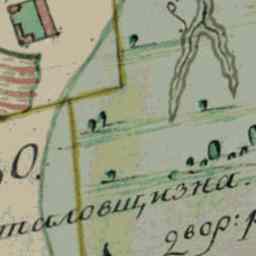 О.
таловщизна.
двор: